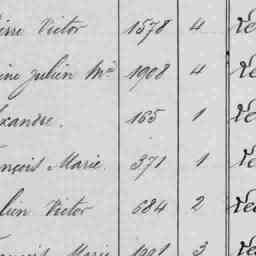 ierre Victor 1578 4
ine Julien M.ie 1908 4
exandre. 165 1
ançois Marie. 371 1
lien Victor 684 2
ançois Marie 1991 3